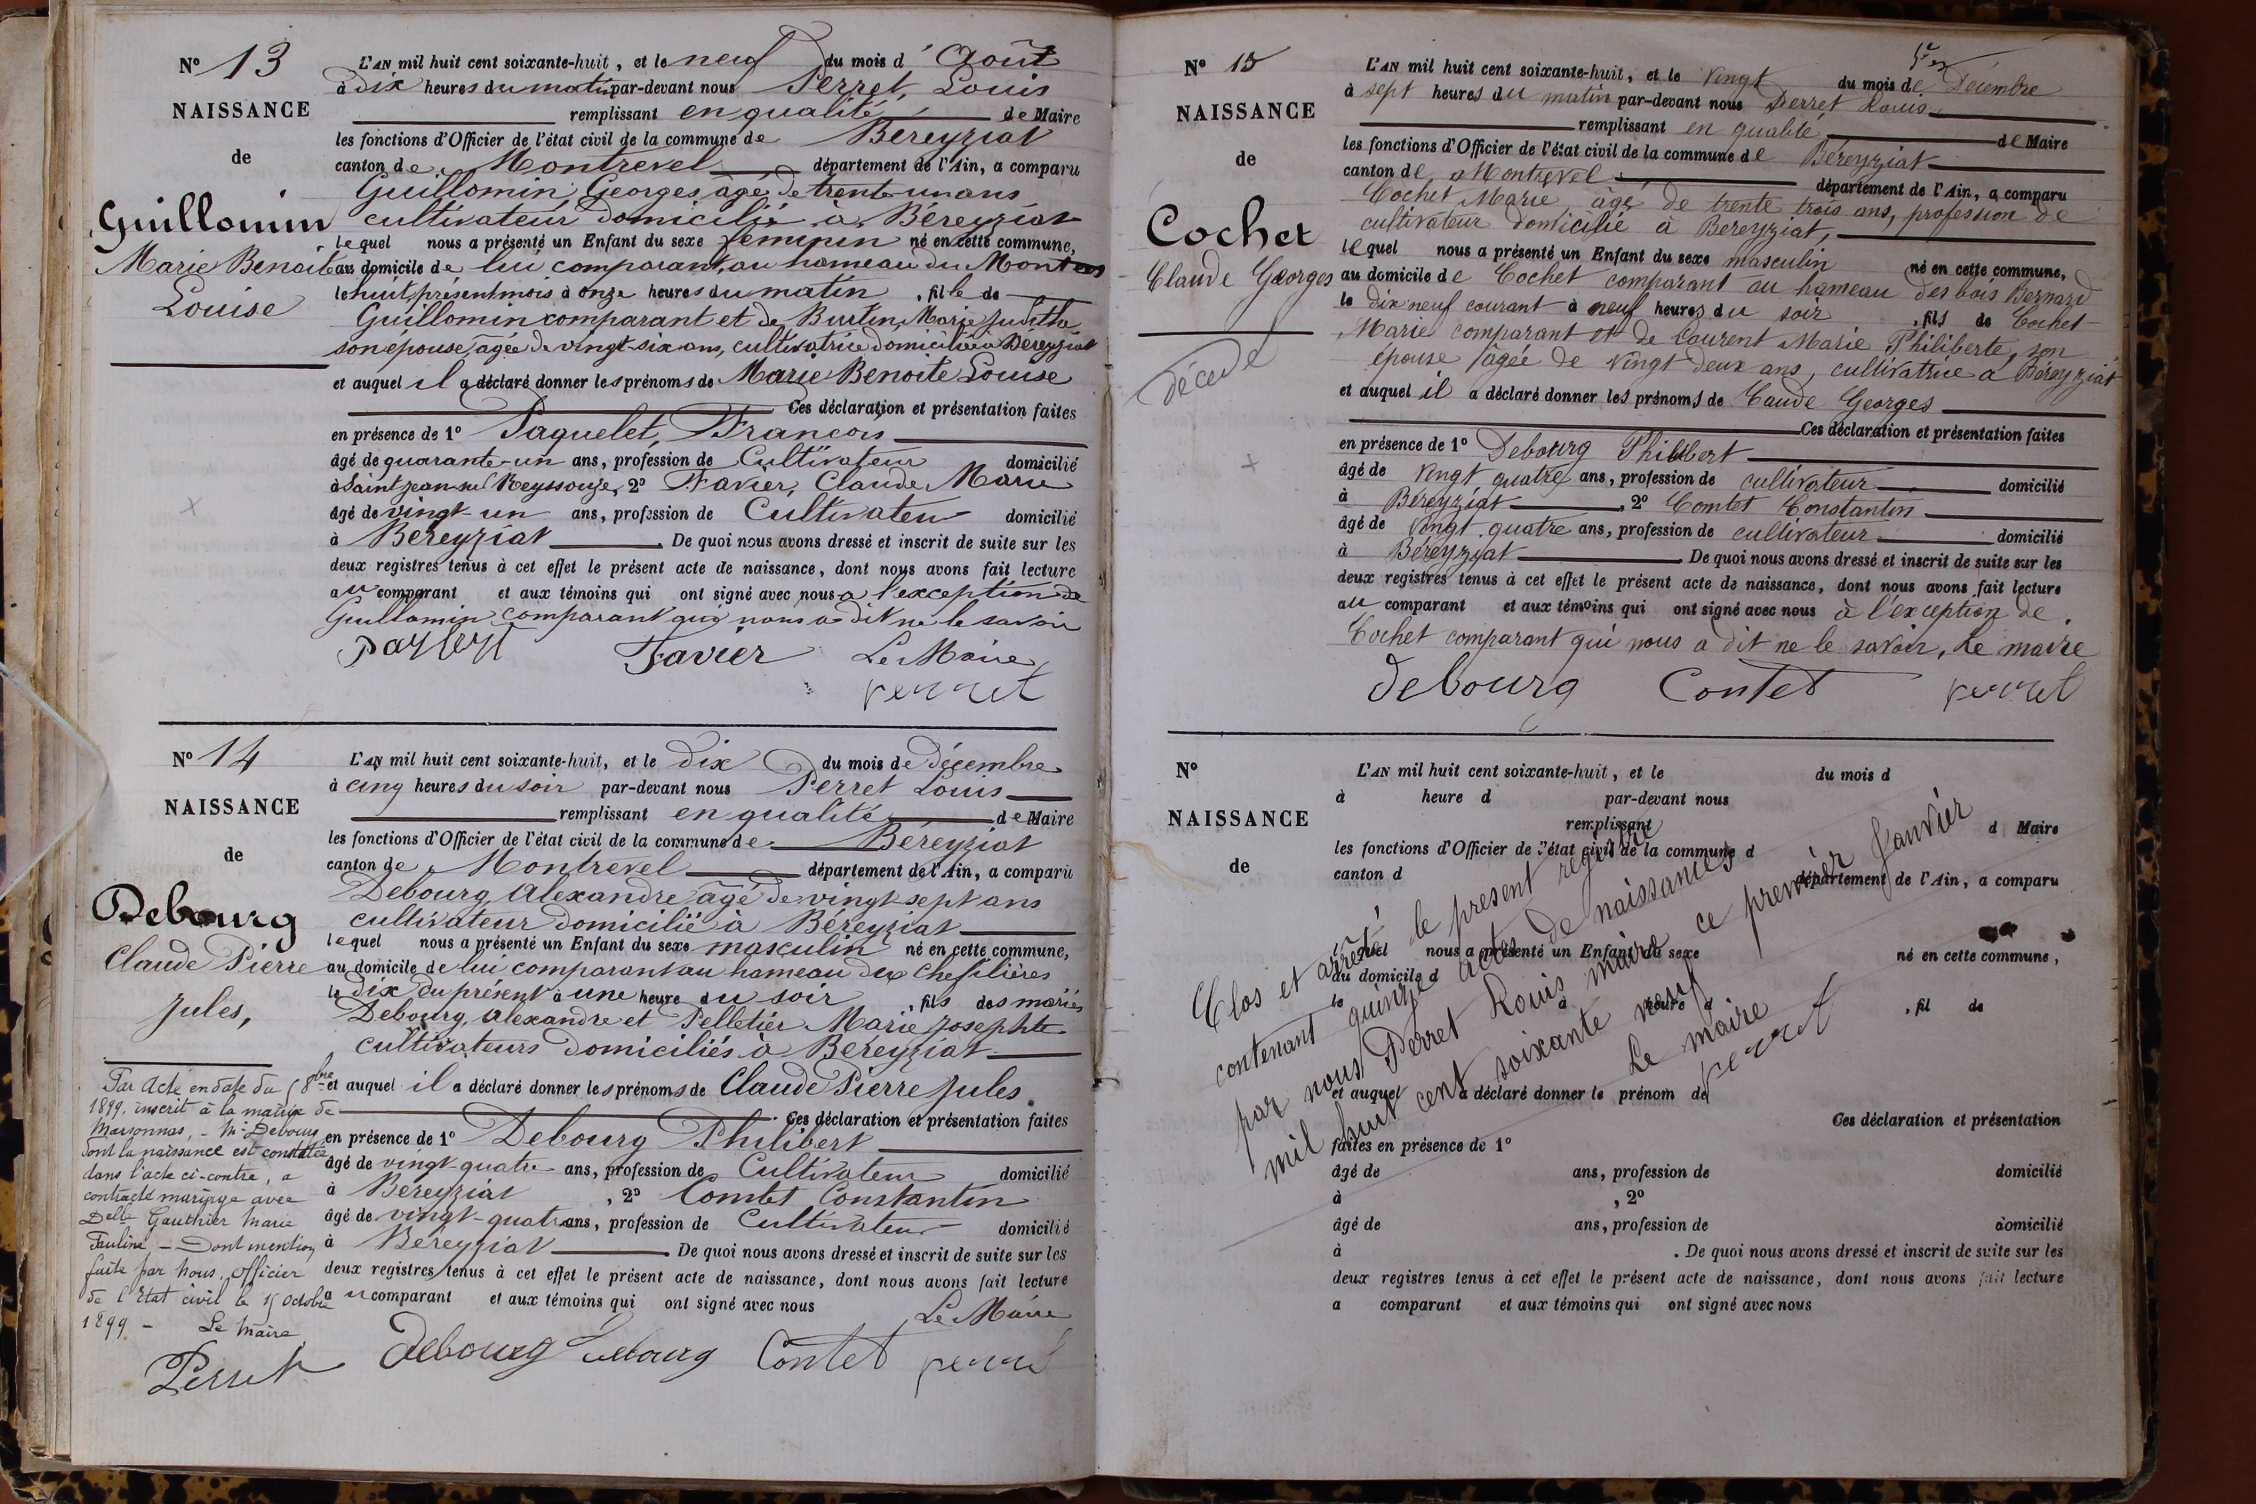 N° 13
NAISSANCE
de
Guillomin
Marie Benoite
Louise
L'AN mil huit cent soixante-huit, et le neuf du mois d'Août
à dix heures du matin par-devant nous Perret Louis
remplissant en qualité de Maire
les fonctions d'Officier de l'état civil de la commune de Béréyziat
canton de Montrevel département de l'Ain, a comparu
Guillomin Georges âgé de trente-un ans
cultivateur domicilié à Béreyziat
lequel nous a présenté un Enfant du sexe féminin né en cette commune,
au domicile de lui comparant, au hameau du
le huit, présent mois à onze heures du matin, fille de
Guillomin comparant et de Burtin, Marie Judith
son épouse, âgée de vingt-six ans, cultivatrice domiciliée à Béreyziat
et auquel il a déclaré donner les prénoms de Marie Benoite Louise
Ces déclaration et présentation faites
en présence de 1° Paquelet, François
âgé de quarante-un ans, profession de Cultivateur domicilié
à Saint jean-sur Reyssouze, 2° Favier, Claude Marie
âgé de vingt-un ans, profession de Cultivateur domicilié
à Béreyziat. De quoi nous avons dressé et inscrit de suite sur les
deux registres tenus à cet effet le présent acte de naissance, dont nous avons fait lecture
au comparant et aux témoins qui ont signé avec nous a l'exception de
Guillomin comparant qui nous a dit ne le savoir
Favier Le Maire
perret
N° 14
NAISSANCE
de
Debourg
Claude Pierre
Jules,
L'AN mil huit cent soixante-huit, et le dix du mois de décembre
à cinq heures du soir par-devant nous Perret Louis
remplissant en qualité de Maire
les fonctions d'Officier de l'état civil de la commune de Béreyziat
canton de Montrevel département de l'Ain, a comparu
Debourg, Alexandre âgé de vingt-sept ans
cultivateur domicilié à Béreyziat
lequel nous a présenté un Enfant du sexe masculin né en cette commune,
au domicile de lui comparant au hameau des
le dix du présent à une heure du soir, fils des mariés
Debourg, Alexandre et Pelletier Marie Josephte
cultivateurs domiciliés à Béreyziat
et auquel il a déclaré donner les prénoms de Claude Pierre Jules.
Ces déclaration et présentation faites
en présence de 1° Debourg Philibert
âgé de vingt-quatre ans, profession de Cultivateur domicilié
à Béreyziat, 2° Comtet Constantin
âgé de vingt-quatre ans, profession de Cultivateur domicilié
à Béreyziat. De quoi nous avons dressé et inscrit de suite sur les
deux registres tenus à cet effet le présent acte de naissance, dont nous avons fait lecture
au comparant et aux témoins qui ont signé avec nous
Le Maire
debourg debourg Contet perret
Par acte en date du 8bre
1899, inscrit à la mairie de
Marsonnas, - Mr Debourg
dont la naissance est constatée
dans l'acte ci-contre, a
contracté mariage avec
Delle Gauthier Marie
Pauline - Dont mention
faite par Nous, Officier
de l'Etat civil le 15 octobre
1899 - Le Maire
Perret
N° 15
NAISSANCE
de
Cochet
Claude Georges
décédé
L'AN mil huit cent soixante-huit, et le vingt du mois de Décembre
à sept heures du matin par-devant nous Perret Louis
remplissant en qualité de Maire
les fonctions d'Officier de l'état civil de la commune de Béréyziat
canton de Montrevel département de l'Ain, a comparu
Cochet Marie, âgé de trente trois ans, profession de
cultivateur domicilié à Béreyziat,
lequel nous a présenté un Enfant du sexe masculin né en cette commune,
au domicile de Cochet comparant au hameau des bois Bernard
le dix neuf courant à neuf heures du soir, fils de Cochet
Marie comparant et de Laurent Marie Philiberte, son
épouse âgée de vingt deux ans, cultivatrice à Béreyziat
et auquel il a déclaré donner les prénoms de Claude Georges
Ces déclaration et présentation faites
en présence de 1° Debourg Philibert
âgé de vingt quatre ans, profession de cultivateur domicilié
à Béreyziat, 2° Comtet Constantin
âgé de vingt quatre ans, profession de cultivateur domicilié
à Béreyziat De quoi nous avons dressé et inscrit de suite sur les
deux registres tenus à cet effet le présent acte de naissance, dont nous avons fait lecture
au comparant et aux témoins qui ont signé avec nous à l'exception de
Cochet comparant qui nous a dit ne le savoir, Le maire
debourg Contet perret
N°
NAISSANCE
de
L'AN mil huit cent soixante-huit, et le du mois d
à heure d par-devant nous
remplissant d Maire
les fonctions d'Officier de l'état civil de la commune d
canton d département de l'Ain, a comparu
lequel nous a présenté un Enfant du sexe né en cette commune,
au domicile d
le à heure d, fil de
et auquel a déclaré donner le prénom de
Ces déclaration et présentation
faites en présence de 1°
âgé de ans, profession de domicilié
à , 2°
âgé de ans, profession de domicilié
à . De quoi nous avons dressé et inscrit de suite sur les
deux registres tenus à cet effet le présent acte de naissance, dont nous avons fait lecture
a comparant et aux témoins qui ont signé avec nous
Clos et arrêté le présent registre
contenant quinze actes de naissances
par nous Perret Louis maire ce premier Janvier
mil huit cent soixante neuf
Le maire
perret